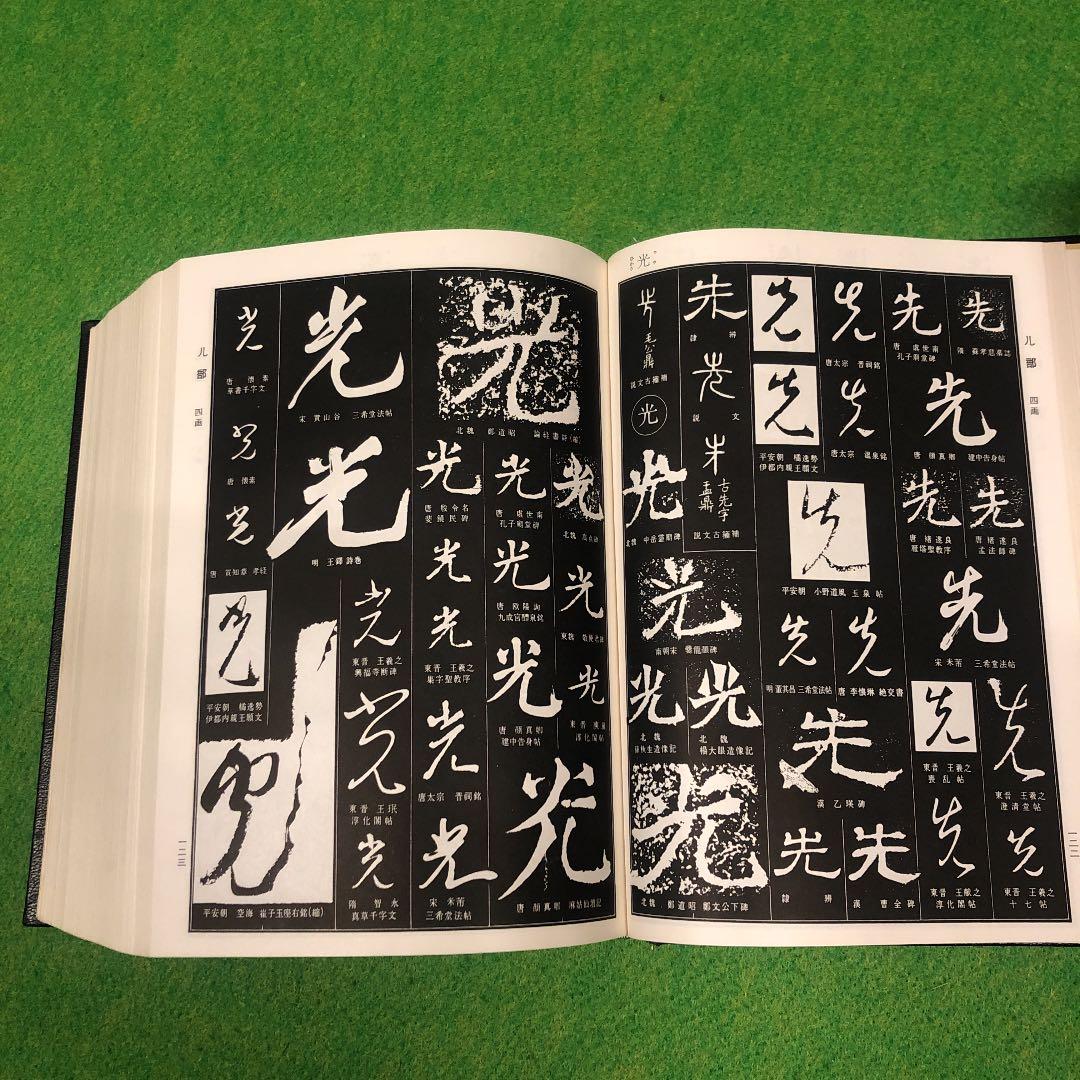 儿部
四画
一二二
先
隋 蘇孝慈墓誌
先
唐 虞世南
孔子廟堂碑
先
唐太宗 晋祠銘
先
先
平安朝 橘逸勢
伊都内親王願文
先
唐太宗 温泉銘
先
唐 顔真卿
建中告身帖
先
唐 褚遂良
孟法師碑
先
唐 褚遂良
雁塔聖教序
先
平安朝 小野道風 玉泉帖
先
宋 米芾 三希堂法帖
先
唐 李懐琳 絶交書
先
明 董其昌 三希堂法帖
先
東晋 王羲之
澄清堂帖
先
東晋 王羲之
喪乱帖
先
漢 乙瑛碑
先
東晋 王羲之
十七帖
先
東晋 王献之
淳化閣帖
先
漢 曹全碑
先
隷辨
先
隷辨
先
説文
先
古先字
盂鼎
説文古籀補
光
ひかり
光
毛公鼎
説文古籀補
光
光
北魏 中岳霊廟碑
光
南朝宋 爨龍顔碑
光
北魏
楊大眼造像記
光
北魏
光
北魏 鄭道昭 鄭文公下碑
光
北魏 鄭道昭 論経書詩(縮)
光
北魏
光
東魏 敬使君碑
光
淳化閣帖
光
唐 虞世南
孔子廟堂碑
光
唐 欧陽詢
九成宮醴泉銘
光
唐 顔真卿
建中告身帖
光
唐 顔真卿 麻姑仙壇記
光
唐 殷令名
裴鏡民碑
光
光
東晋 王羲之
集字聖教序
光
唐太宗 晋祠銘
光
宋 米芾
三希堂法帖
光
宋 黄山谷 三希堂法帖
光
明 王鐸 詩巻
光
東晋 王羲之
興福寺断碑
光
東晋 王珉
淳化閣帖
光
隋 智永
真草千字文
光
唐 懐素
草書千字文
光
唐 懐素
光
唐 賀知章 孝経
光
平安朝 橘逸勢
伊都内親王願文
光
平安朝 空海 崔子玉座右銘(縮)
儿部
四画
一二三